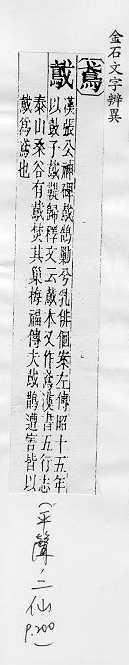 金石文字辨異
鳶
䳒
漢張公神碑䳒鵠勦兮乳俳佪案左傳昭十五年
以鼓子䳒鞮歸釋文云䳒本又作鳶漢書五行志
泰山桑谷有䳒焚其巢梅福傳夫䳒鵲遭害皆以
䳒爲鳶也
(平聲、二仙
p.200)